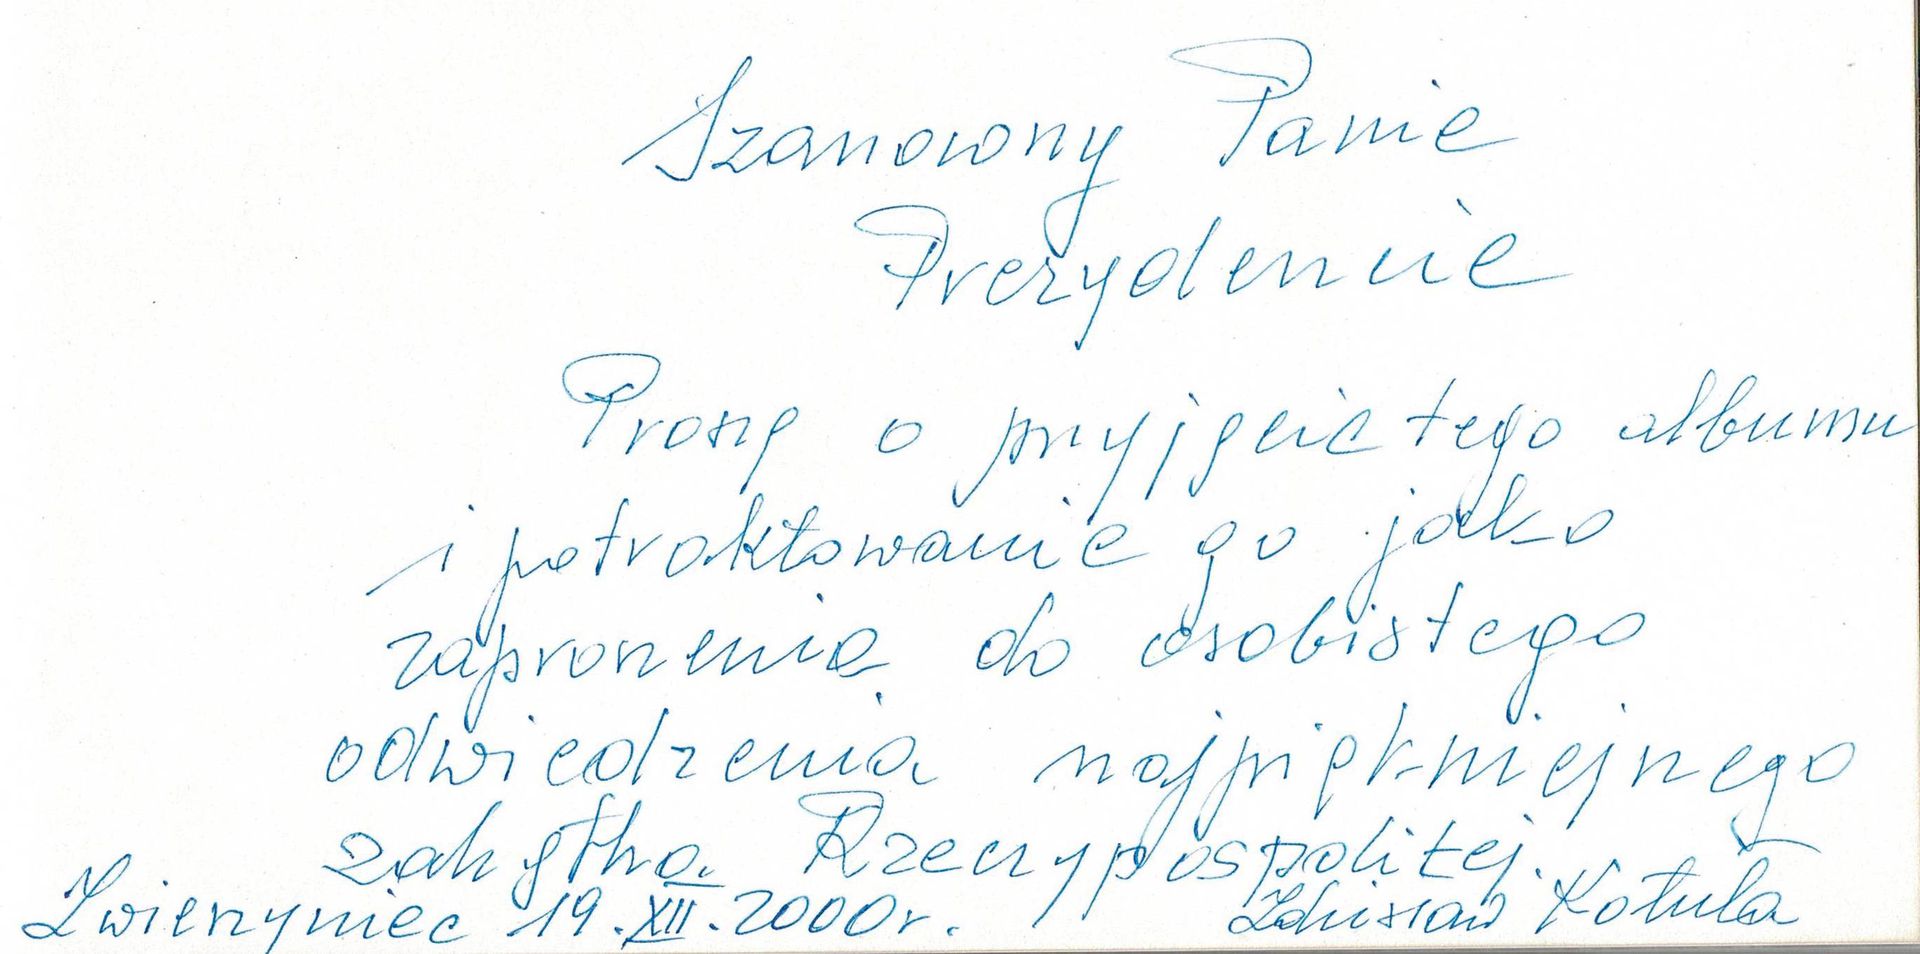 Szanowny Panie
Prezydencie
Proszę o przyjęcie tego albumu
i potraktowanie go jako
zaproszenia do osobistego
odwiedzenia najpiękniejszego
zakątka Rzeczypospolitej.
Zwierzyniec 19.XII.2000r. Zdzisław Kotuła